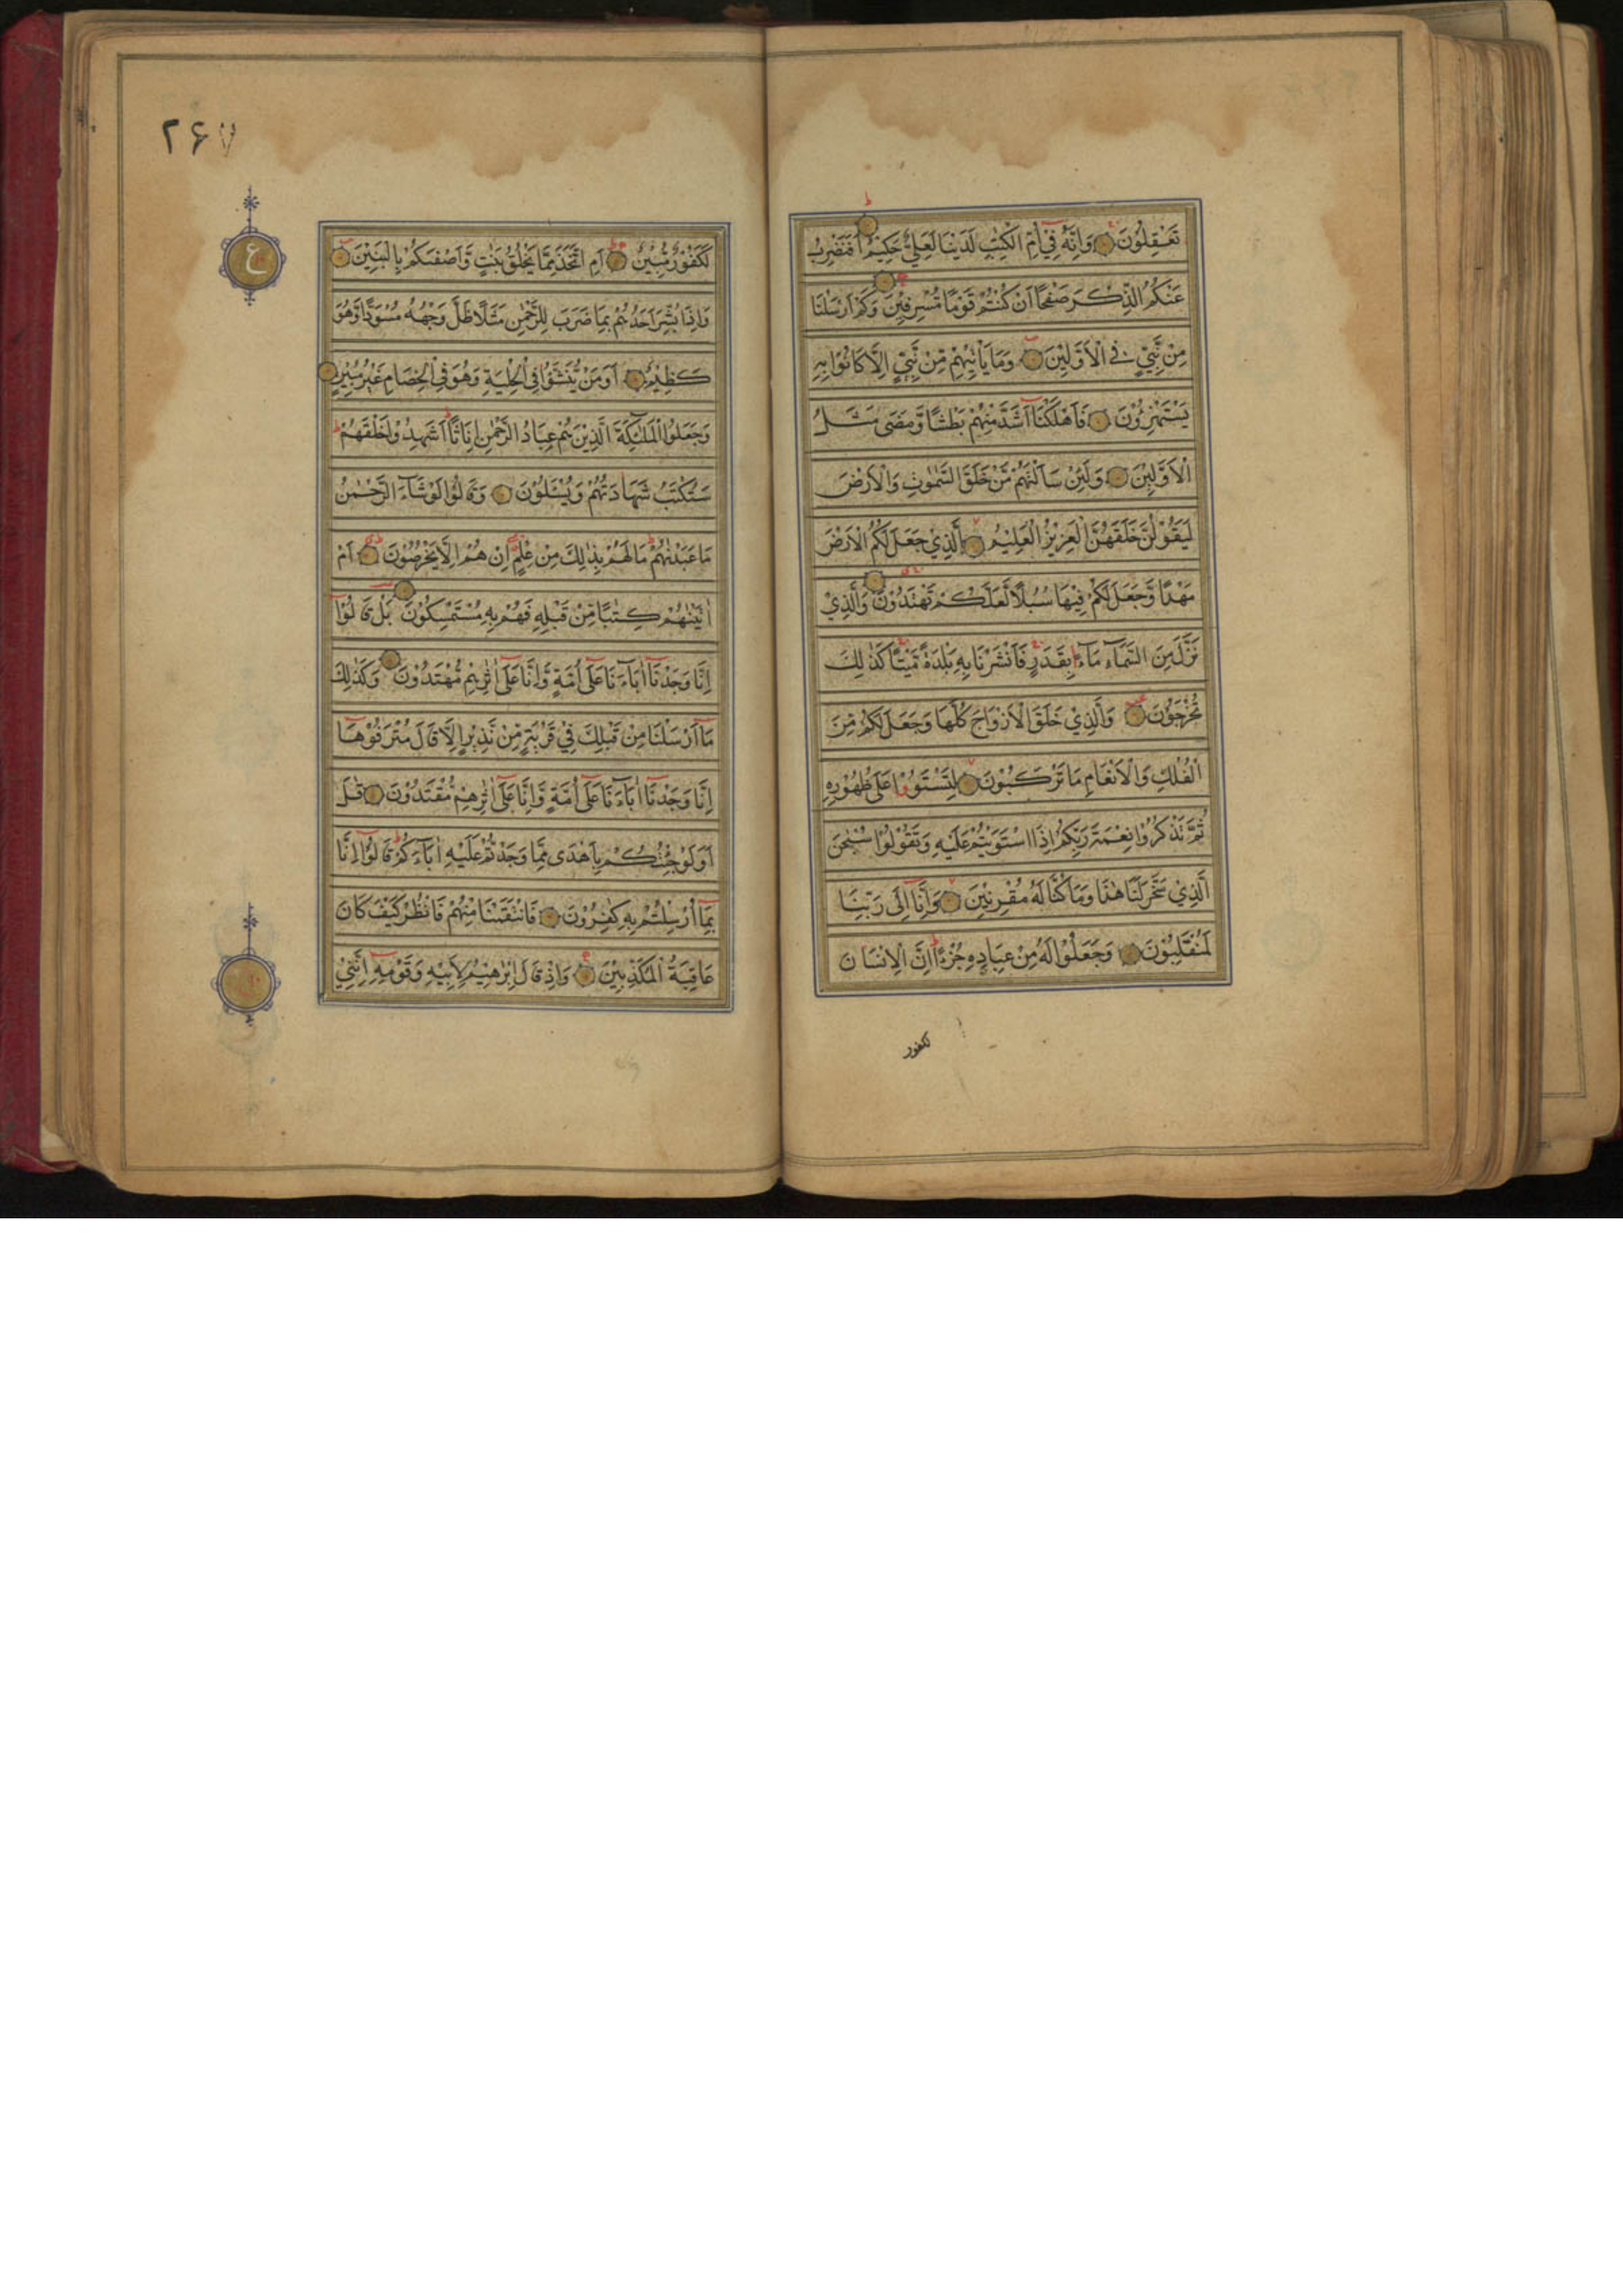 تَعْقِلُوْنَ وَاِنَّهٗ فِيْٓ اُمِّ الْكِتٰبِ لَدَيْنَا لَعَلِيٌّ حَكِيْمٌ اَفَنَضْرِبُ
عَنْكُمُ الذِّكْرَ صَفْحًا اَنْ كُنْتُمْ قَوْمًا مُّسْرِفِيْنَ وَكَمْ اَرْسَلْنَا
مِنْ نَّبِيٍّ فِي الْاَوَّلِيْنَ وَمَا يَاْتِيْهِمْ مِّنْ نَّبِيٍّ اِلَّا كَانُوْا بِهٖ
يَسْتَهْزِءُوْنَ فَاَهْلَكْنَآ اَشَدَّ مِنْهُمْ بَطْشًا وَّمَضٰى مَثَلُ
الْاَوَّلِيْنَ وَلَئِنْ سَاَلْتَهُمْ مَّنْ خَلَقَ السَّمٰوٰتِ وَالْاَرْضَ
لَيَقُوْلُنَّ خَلَقَهُنَّ الْعَزِيْزُ الْعَلِيْمُ الَّذِيْ جَعَلَ لَكُمُ الْاَرْضَ
مَهْدًا وَّجَعَلَ لَكُمْ فِيْهَا سُبُلًا لَّعَلَّكُمْ تَهْتَدُوْنَ وَالَّذِيْ
نَزَّلَ مِنَ السَّمَآءِ مَآءً بِقَدَرٍ فَاَنْشَرْنَا بِهٖ بَلْدَةً مَّيْتًا كَذٰلِكَ
تُخْرَجُوْنَ وَالَّذِيْ خَلَقَ الْاَزْوَاجَ كُلَّهَا وَجَعَلَ لَكُمْ مِّنَ
الْفُلْكِ وَالْاَنْعَامِ مَا تَرْكَبُوْنَ لِتَسْتَوٗا عَلٰى ظُهُوْرِهٖ
ثُمَّ تَذْكُرُوْا نِعْمَةَ رَبِّكُمْ اِذَا اسْتَوَيْتُمْ عَلَيْهِ وَتَقُوْلُوْا سُبْحٰنَ
الَّذِيْ سَخَّرَ لَنَا هٰذَا وَمَا كُنَّا لَهٗ مُقْرِنِيْنَ وَاِنَّآ اِلٰى رَبِّنَا
لَمُنْقَلِبُوْنَ وَجَعَلُوْا لَهٗ مِنْ عِبَادِهٖ جُزْءًا اِنَّ الْاِنْسَانَ
لكفور
٢۶٧
لَكَفُوْرٌ مُّبِيْنٌ اَمِ اتَّخَذَ مِمَّا يَخْلُقُ بَنٰتٍ وَّاَصْفٰىكُمْ بِالْبَنِيْنَ
وَاِذَا بُشِّرَ اَحَدُهُمْ بِمَا ضَرَبَ لِلرَّحْمٰنِ مَثَلًا ظَلَّ وَجْهُهٗ مُسْوَدًّا وَّهُوَ
كَظِيْمٌ اَوَمَنْ يُّنَشَّؤُا فِي الْحِلْيَةِ وَهُوَ فِي الْخِصَامِ غَيْرُ مُبِيْنٍ
وَجَعَلُوا الْمَلٰٓئِكَةَ الَّذِيْنَ هُمْ عِبَادُ الرَّحْمٰنِ اِنَاثًا اَشَهِدُوْا خَلْقَهُمْ
سَتُكْتَبُ شَهَادَتُهُمْ وَيُسْـَٔلُوْنَ وَقَالُوْا لَوْ شَآءَ الرَّحْمٰنُ
مَا عَبَدْنٰهُمْ مَا لَهُمْ بِذٰلِكَ مِنْ عِلْمٍ اِنْ هُمْ اِلَّا يَخْرُصُوْنَ اَمْ
اٰتَيْنٰهُمْ كِتٰبًا مِّنْ قَبْلِهٖ فَهُمْ بِهٖ مُسْتَمْسِكُوْنَ بَلْ قَالُوْٓا
اِنَّا وَجَدْنَآ اٰبَآءَنَا عَلٰٓى اُمَّةٍ وَّاِنَّا عَلٰٓى اٰثٰرِهِمْ مُّهْتَدُوْنَ وَكَذٰلِكَ
مَآ اَرْسَلْنَا مِنْ قَبْلِكَ فِيْ قَرْيَةٍ مِّنْ نَّذِيْرٍ اِلَّا قَالَ مُتْرَفُوْهَآ
اِنَّا وَجَدْنَآ اٰبَآءَنَا عَلٰٓى اُمَّةٍ وَّاِنَّا عَلٰٓى اٰثٰرِهِمْ مُّقْتَدُوْنَ قٰلَ
اَوَلَوْ جِئْتُكُمْ بِاَهْدٰى مِمَّا وَجَدْتُّمْ عَلَيْهِ اٰبَآءَكُمْ قَالُوْٓا اِنَّا
بِمَآ اُرْسِلْتُمْ بِهٖ كٰفِرُوْنَ فَانْتَقَمْنَا مِنْهُمْ فَانْظُرْ كَيْفَ كَانَ
عَاقِبَةُ الْمُكَذِّبِيْنَ وَاِذْ قَالَ اِبْرٰهِيْمُ لِاَبِيْهِ وَقَوْمِهٖٓ اِنَّنِيْ
ع